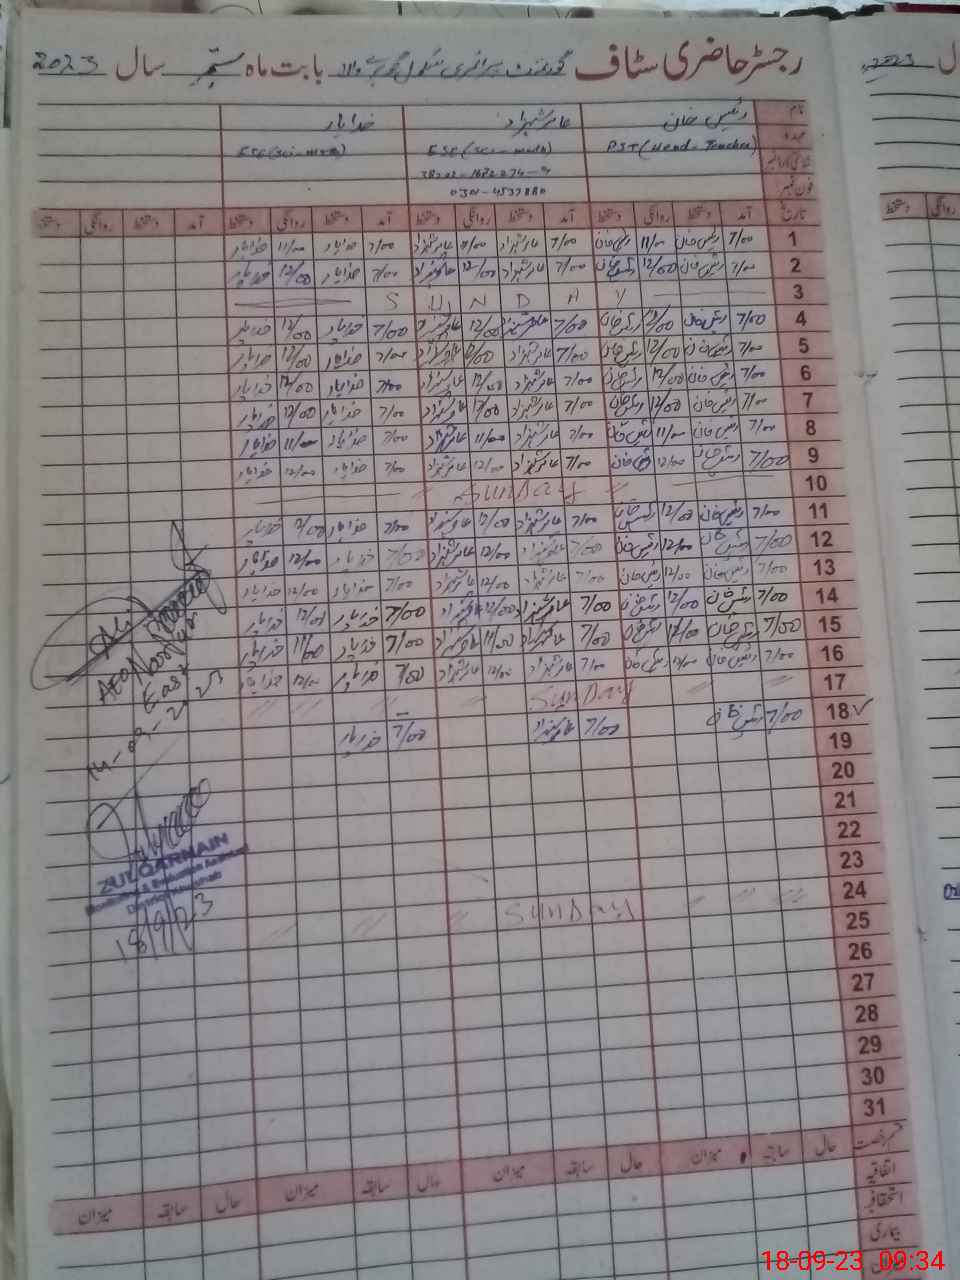 رجسٹر حاضری سٹاف گورنمنٹ پرائمری سکول بابت ماہ ستمبر سال 2023
نام رئیس خان عامر شہزاد خدایار
عہدہ PST (Head-Teacher) ESE (Sci-math) ESE (Sci-math)
شناختی کارڈ نمبر
فون نمبر 0301-4537880
تاریخ آمد دستخط روانگی دستخط آمد دستخط روانگی دستخط آمد دستخط روانگی دستخط آمد دستخط روانگی دستخط
1 7/00 رئیس خان 11/00 رئیس خان 7/00 عامر شہزاد 11/00 عامر شہزاد 7/00 خدایار 11/00 خدایار
2 7/00 رئیس خان 12/00 رئیس خان 7/00 عامر شہزاد 12/00 عامر شہزاد 7/00 خدایار 12/00 خدایار
3 SUNDAY
4 7/00 رئیس خان 12/00 رئیس خان 7/00 عامر شہزاد 12/00 عامر شہزاد 7/00 خدایار 12/00 خدایار
5 7/00 رئیس خان 12/00 رئیس خان 7/00 عامر شہزاد 12/00 عامر شہزاد 7/00 خدایار 12/00 خدایار
6 7/00 رئیس خان 12/00 رئیس خان 7/00 عامر شہزاد 12/00 عامر شہزاد 7/00 خدایار 12/00 خدایار
7 7/00 رئیس خان 12/00 رئیس خان 7/00 عامر شہزاد 12/00 عامر شہزاد 7/00 خدایار 12/00 خدایار
8 7/00 رئیس خان 11/00 رئیس خان 7/00 عامر شہزاد 11/00 عامر شہزاد 7/00 خدایار 11/00 خدایار
9 7/00 رئیس خان 12/00 رئیس خان 7/00 عامر شہزاد 12/00 عامر شہزاد 7/00 خدایار 12/00 خدایار
10 SUNDAY
11 7/00 رئیس خان 12/00 رئیس خان 7/00 عامر شہزاد 12/00 عامر شہزاد 7/00 خدایار 12/00 خدایار
12 7/00 رئیس خان 12/00 رئیس خان 7/00 عامر شہزاد 12/00 عامر شہزاد 7/00 خدایار 12/00 خدایار
13 7/00 رئیس خان 12/00 رئیس خان 7/00 عامر شہزاد 12/00 عامر شہزاد 7/00 خدایار 12/00 خدایار
14 7/00 رئیس خان 12/00 رئیس خان 7/00 عامر شہزاد 12/00 عامر شہزاد 7/00 خدایار 12/00 خدایار
15 7/00 رئیس خان 11/00 رئیس خان 7/00 عامر شہزاد 11/00 عامر شہزاد 7/00 خدایار 11/00 خدایار
16 7/00 رئیس خان 12/00 رئیس خان 7/00 عامر شہزاد 12/00 عامر شہزاد 7/00 خدایار 12/00 خدایار
17 SUNDAY
18 7/00 رئیس خان 7/00 عامر شہزاد 7/00 خدایار
19
20
21
22
23
24 SUNDAY
25
26
27
28
29
30
31
قسم رخصت حال سابقہ میزان حال سابقہ میزان حال سابقہ میزان حال سابقہ میزان
اتفاقیہ
استحقاقیہ
بیماری
Ali
AEO
East
ZULQARNAIN
Monitoring & Evaluation Assistant
District
18/9/23
2023
ل
دستخط روانگی
18-09-23 09:34